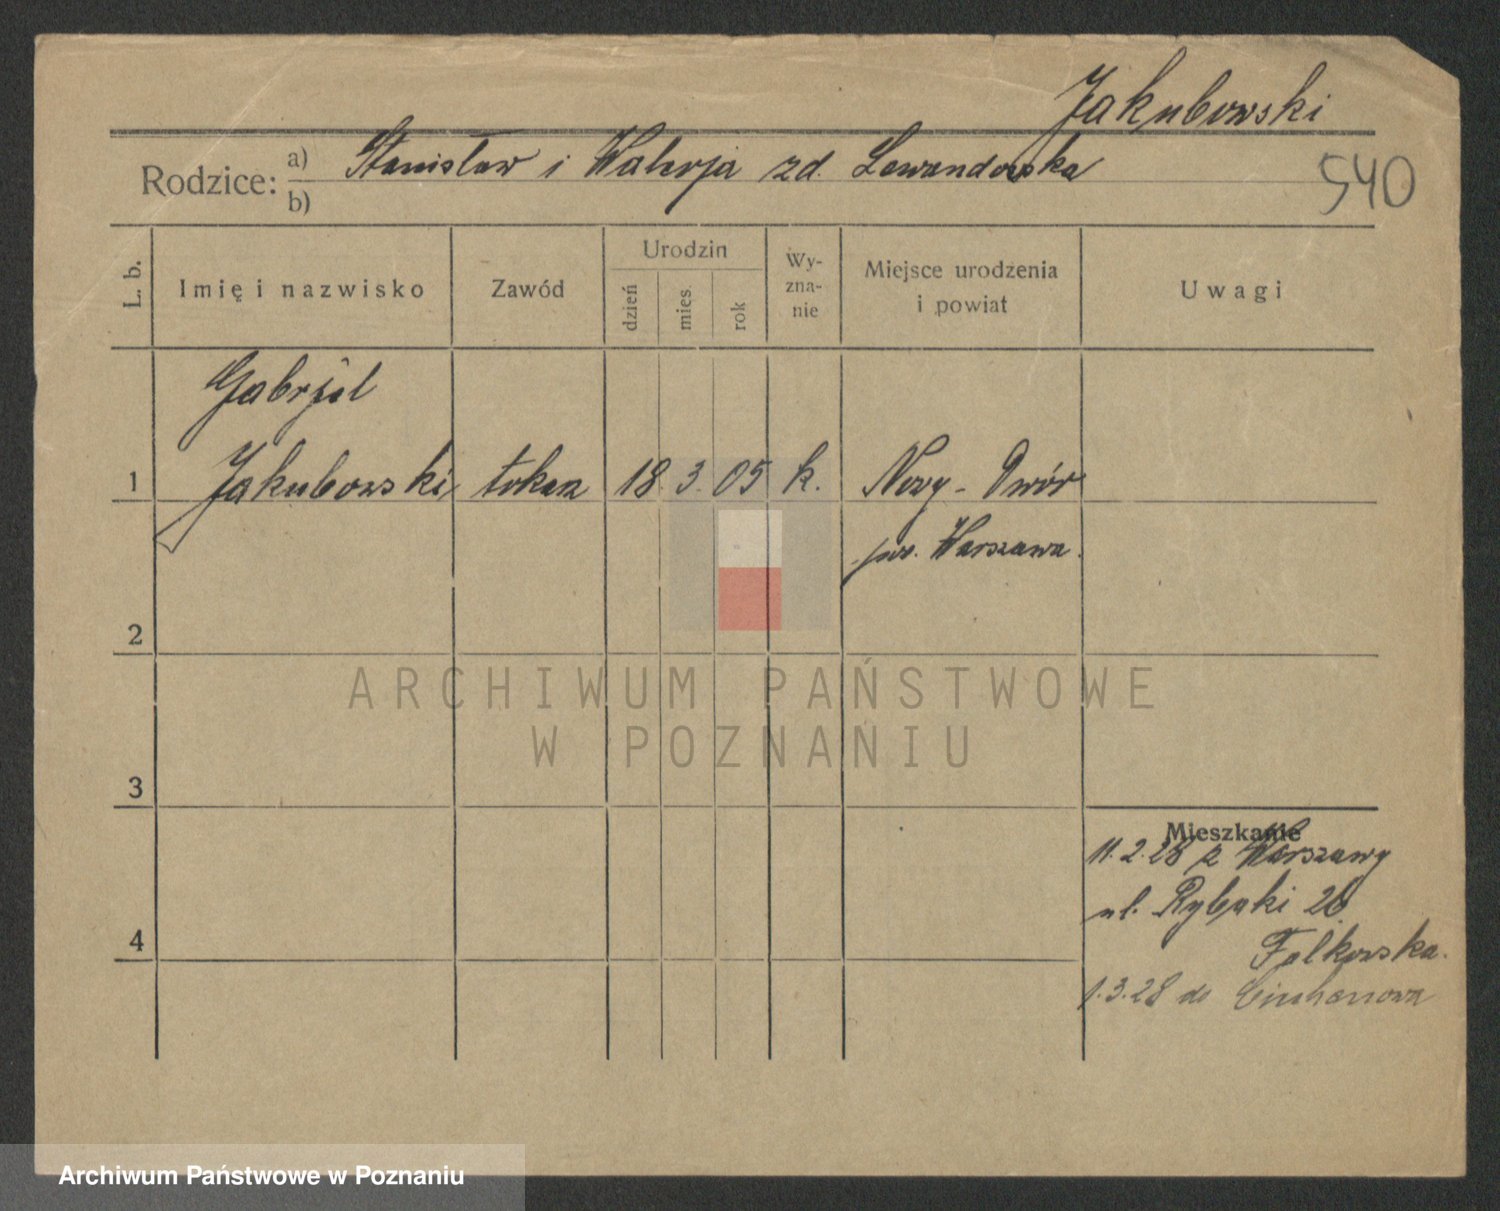 Jakubowski
540
Rodzice: a) Stanisław i Walerja zd. Lewandowska
b)
L. b.
Imię i nazwisko
Zawód
Urodzin
dzień
mies.
rok
Wy-
zna-
nie
Miejsce urodzenia
i powiat
Uwagi
Gabrjel
1 Jakubowski tokarz 18. 3. 05 k. Nowy-Dwór
pow. Warszawa.
2
3
4
Mieszkanie
11.2.28 z Warszawy
ul. Rybaki 26
Falkowska.
1.3.28 do Ciechanowa
ARCHIWUM PAŃSTWOWE
W POZNANIU
Archiwum Państwowe w Poznaniu